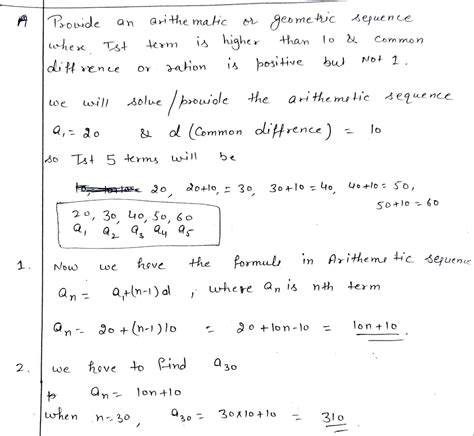 A Provide an arithematic or geometric sequence
where Ist term is higher than 10 & common
diffrence or ration is positive but Not 1.
we will solve/provide the arithemetic sequence
a₁ = 20 & d (Common diffrence) = 10
so Ist 5 terms will be
20, 20+10, = 30, 30+10 = 40, 40+10 = 50,
50+10 = 60
20, 30, 40, 50, 60
a₁ a₂ a₃ a₄ a₅
1. Now we have the formula in Arithemetic sequence
aₙ = a₁+(n-1)d , where aₙ is nth term
aₙ = 20+(n-1)10 = 20+10n-10 = 10n+10.
2. we have to find a₃₀
aₙ = 10n+10
when n=30, a₃₀ = 30×10+10 = 310.